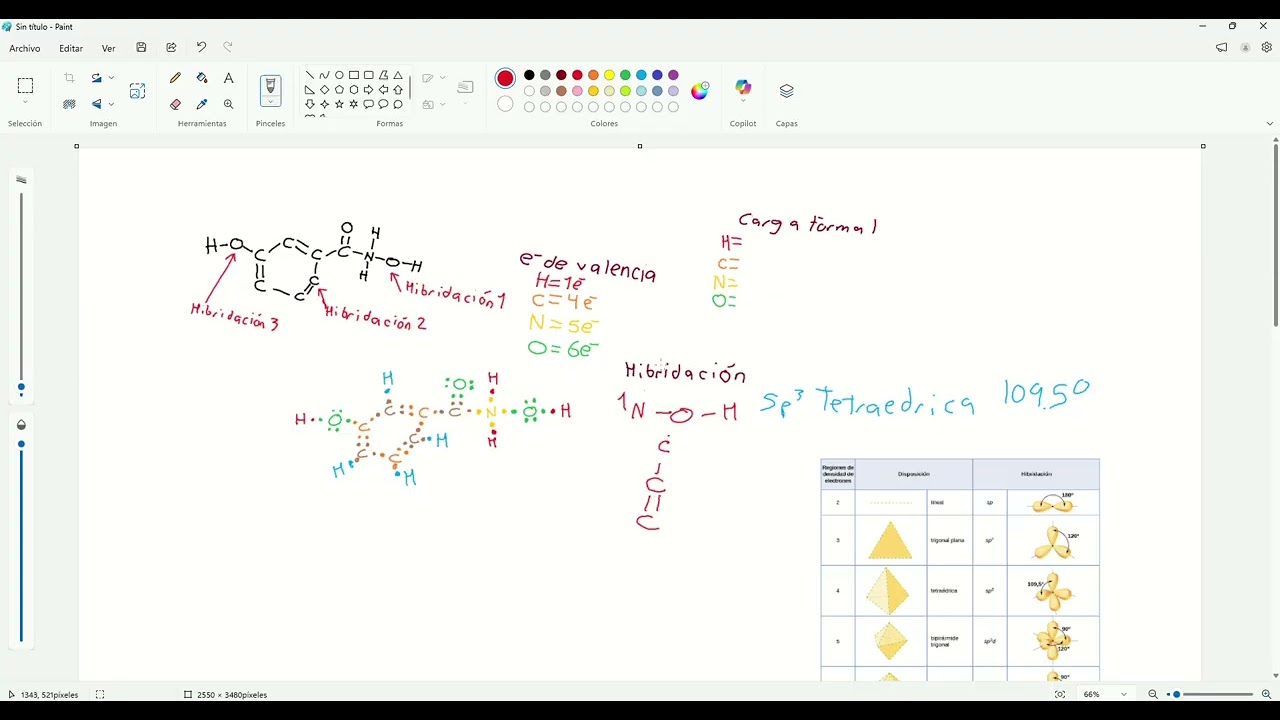 Sin título - Paint
Archivo Editar Ver
Selección Imagen Herramientas Pinceles Formas Colores Copilot Capas
Carga formal
H=
C=
N=
O=
H-O C C C O C N H H O-H
C C C C
Hibridación 1
Hibridación 2
Hibridación 3
e⁻ de valencia
H=1e⁻
C=4e⁻
N=5e⁻
O=6e⁻
H O H
H O C C C N O H
C C H H
H C C H
Hibridación
1 N-O-H sp³ Tetraedrica 109.5°
C
C
C
Regiones de densidad de electrones Disposición Hibridación
2 lineal sp 180°
3 trigonal plana sp² 120°
4 tetraédrica sp³ 109,5°
5 bipirámide trigonal sp³d 90° 120°
90°
1343, 521píxeles 2550 × 3480píxeles 66%